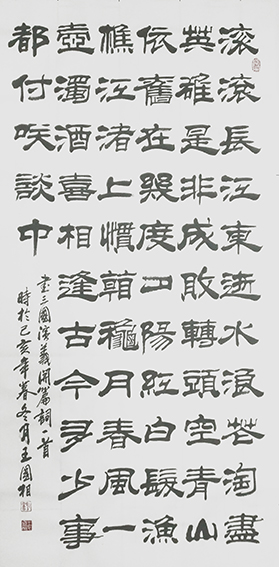 滾滾長江東逝水浪花淘盡
英雄是非成敗轉頭空青山
依舊在幾度夕陽紅白髮漁
樵江渚上慣看龝月春風一
壺濁酒喜相逢古今多少事
都付咲談中
書三國演義開篇詞一首
時於己亥年暮冬月王國相